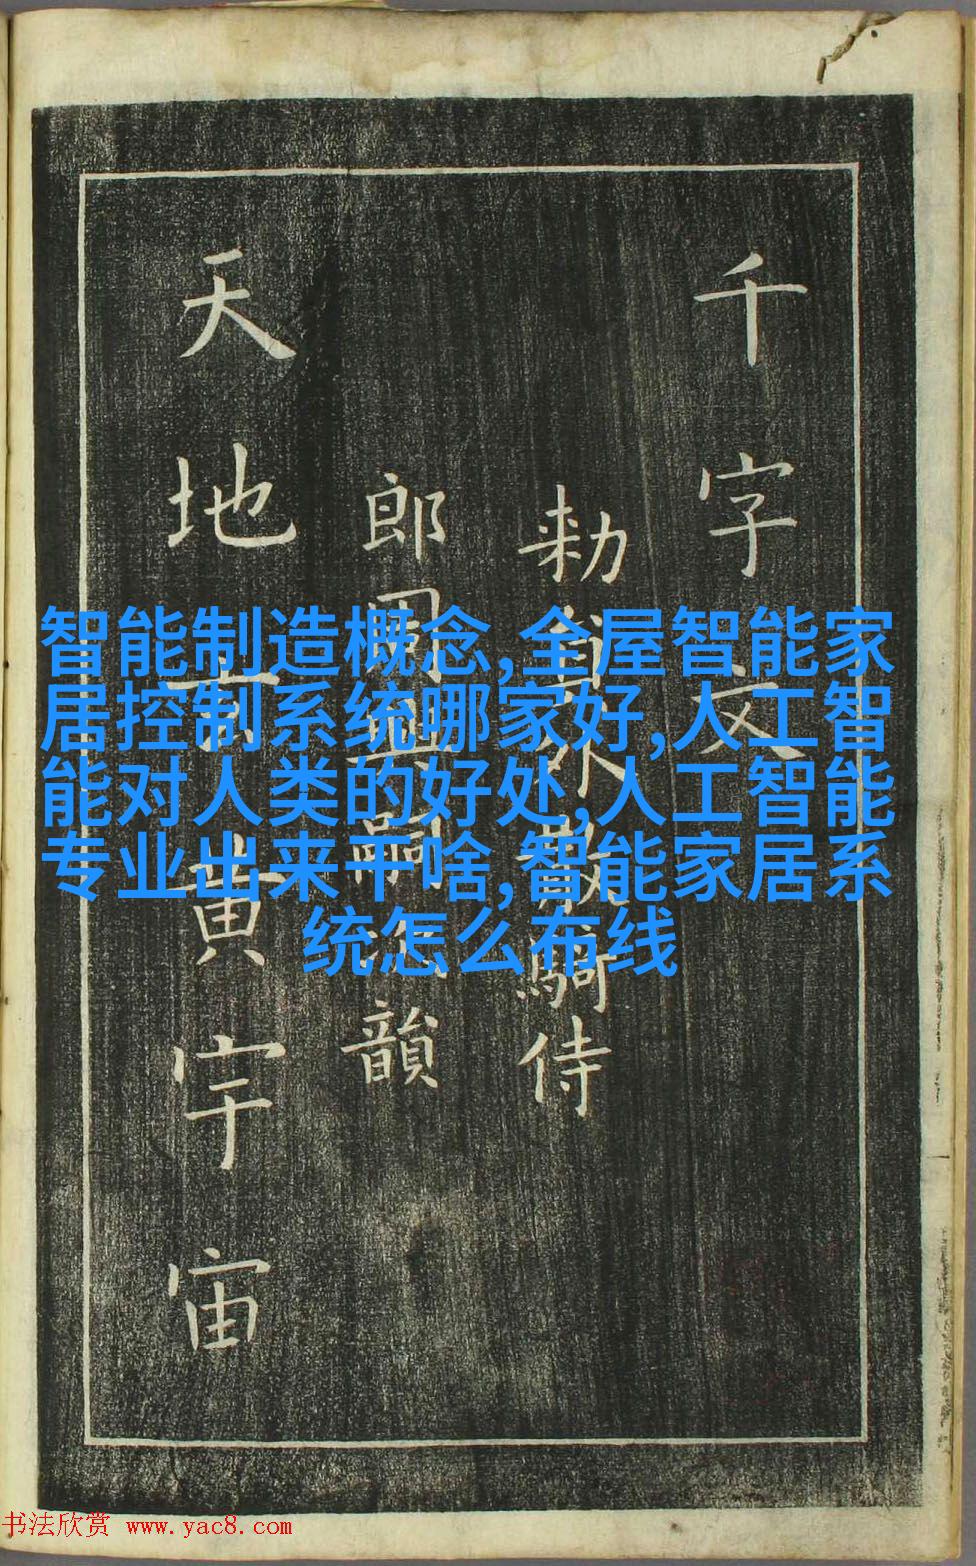 千字文
勑員外散騎侍
郎周興嗣次韻
天地玄黄宇宙
智能制造概念,全屋智能家
居控制系统哪家好,人工智
能对人类的好处,人工智能
专业出来干啥,智能家居系
统怎么布线
书法欣赏 www.yac8.com